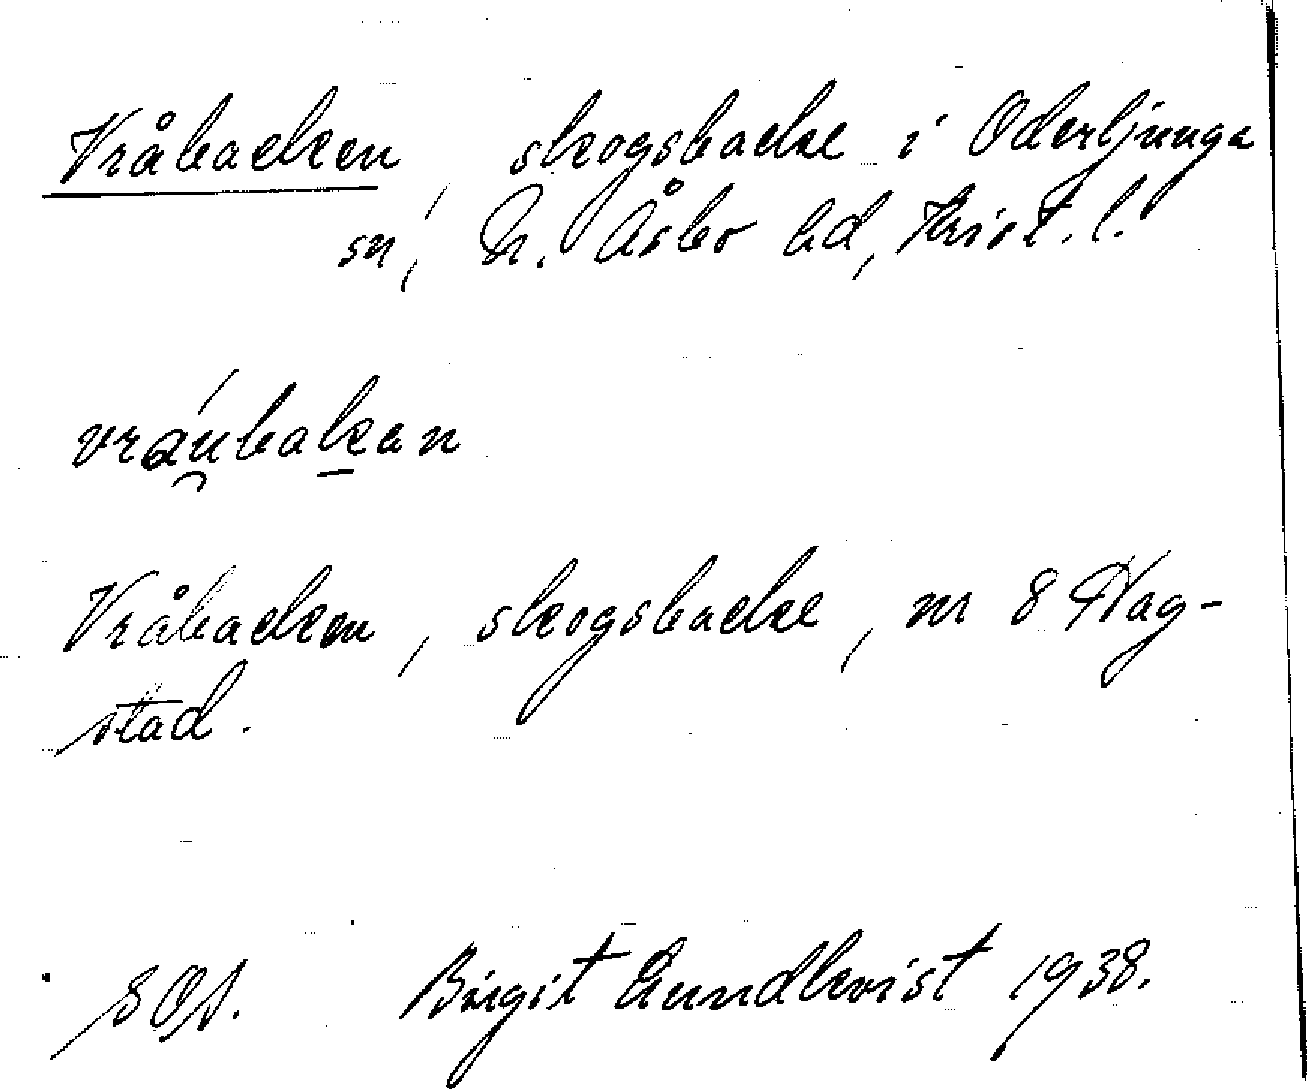 Vråbacken, skogsbacke i Oderljunga
sn, N. Åsbo hd, Krist. l.
vráu̯bak̠an
Vråbacken, skogsbacke, nr 8 Hag-
stad.
SOA. Birgit Lundkvist 1938.